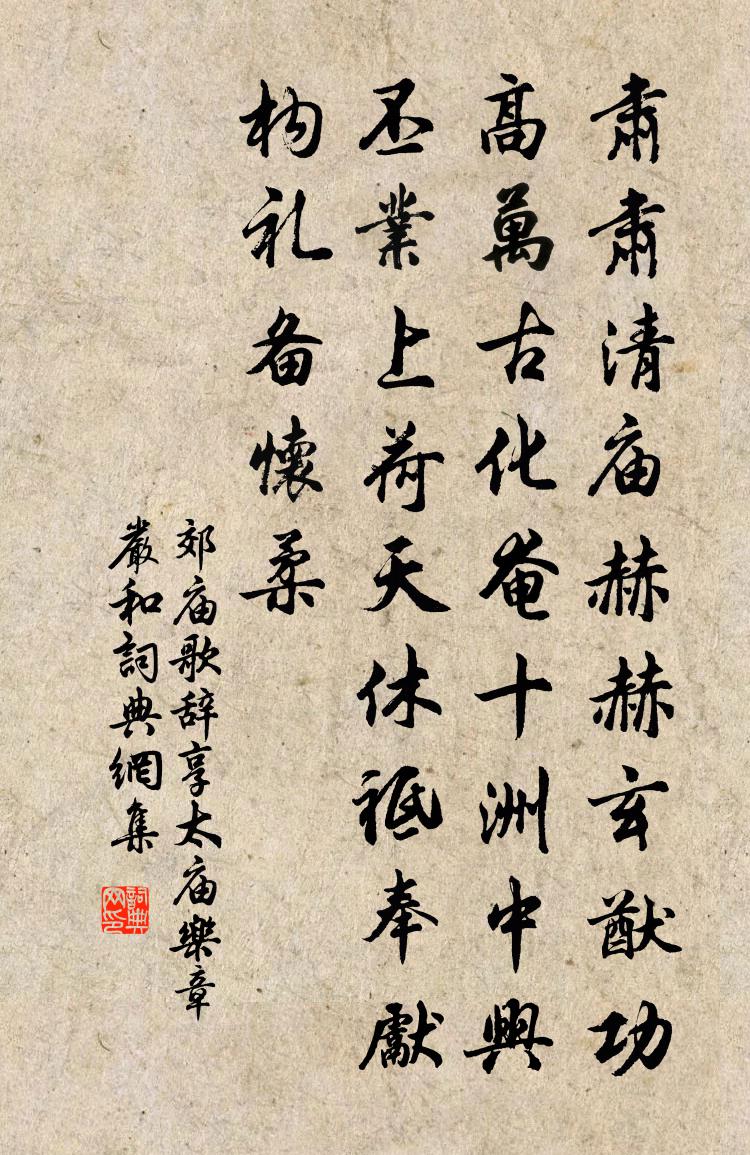 肅肅清庙赫赫玄猷功
高萬古化奄十洲中興
丕業上荷天休祗奉獻
构礼备懷柔
郊庙歌辞享太庙樂章
嚴和詞典網集
詞典网印